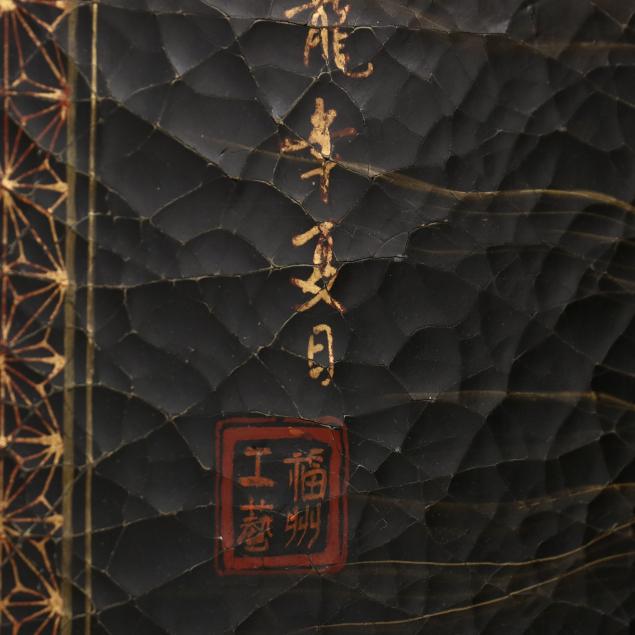 龍年夏日
福州
工藝